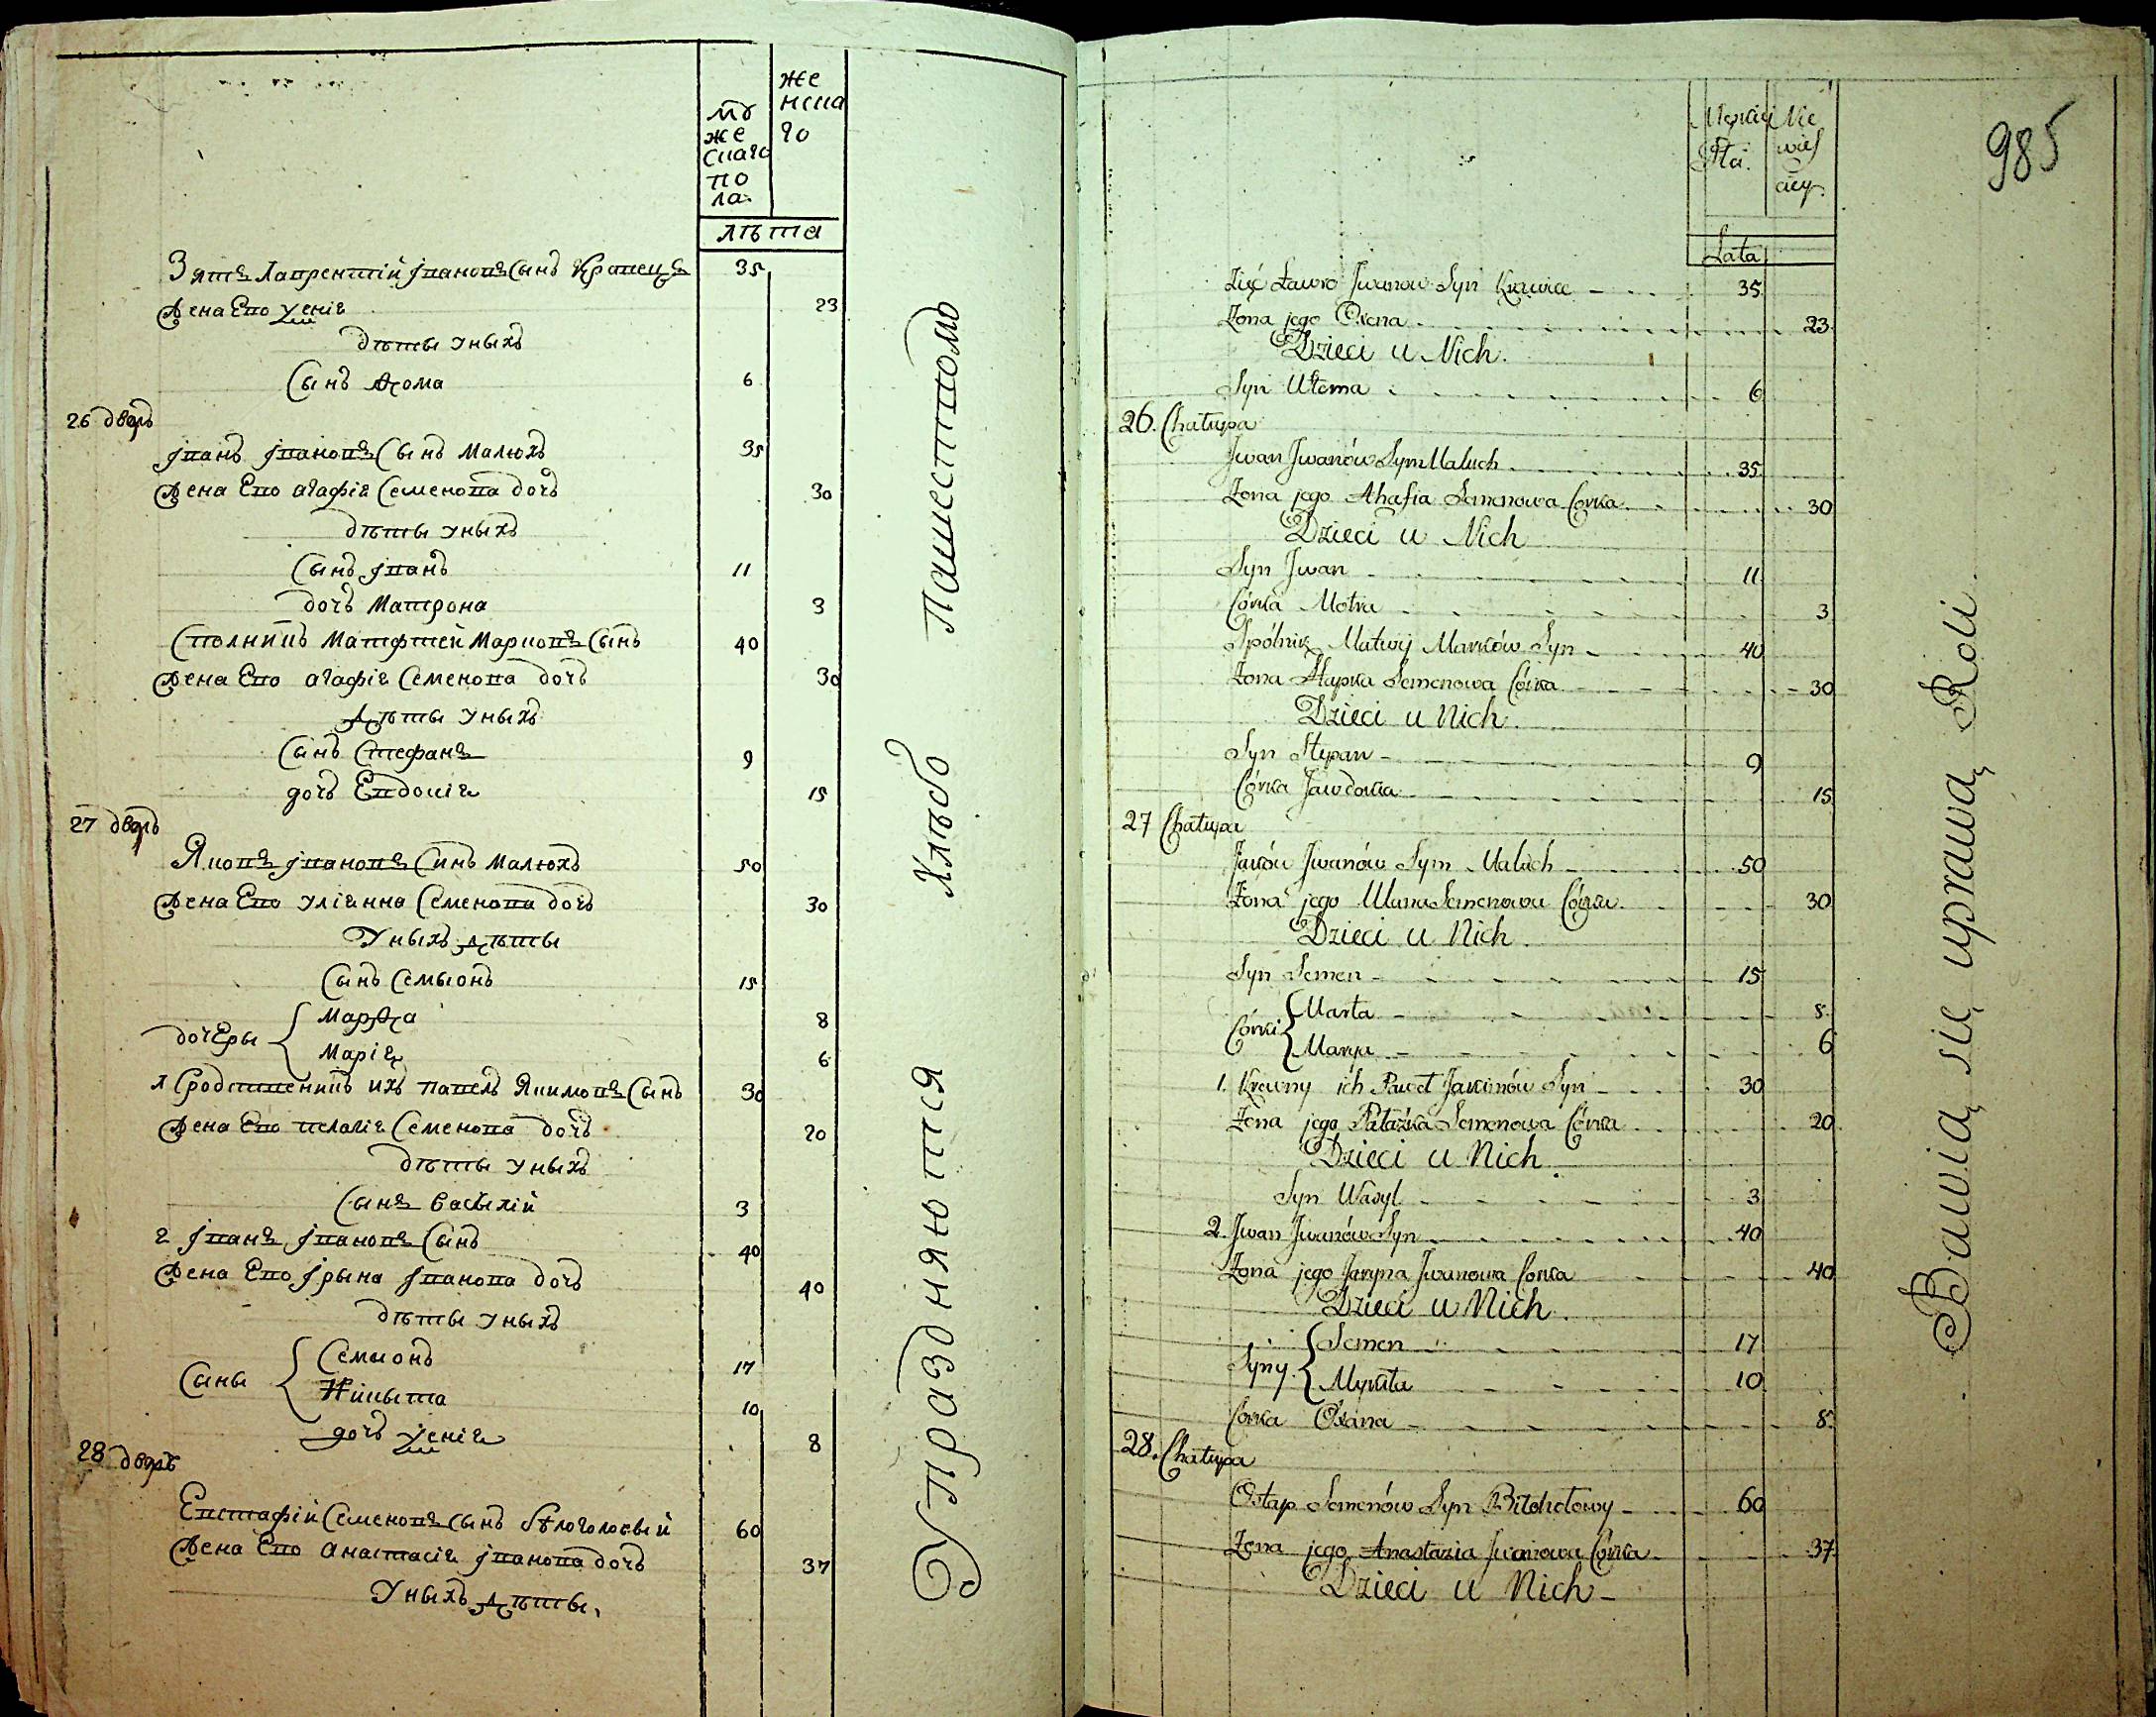 мужескаго пола.
женскаго
лѣта
Зять Лаврентій Іванов Сынъ Кравец 35
Жена Ево Ксенія 23
дѣты Уныхъ
Сынъ Фома 6
26 дворъ
Іванъ Іванов Сынъ Малюхъ 35
Жена Ево агафія Семенова дочь 30
дѣты Уныхъ
Сынъ Іванъ 11
дочь Матрона 3
Сполникъ Матфтей Марков Сынъ 40
Жена Ево агафія Семенова дочь 30
Дѣты Уныхъ
Сынъ Стефан 9
дочь Евдокія 15
27 дворъ
Яков Іванов Синъ Малюхъ 50
Жена Ево Уліянна Семенова дочь 30
Уныхъ Дѣты
Сынъ Семыонъ 15
дочЕры
Марфа 8
Марія 6
1 Сродственикъ ихъ Павелъ Якимов Сынъ 30
Жена Ево пелагія Семенова дочь 20
дѣты Уныхъ
Сынъ Василій 3
2 Іван Іванов Сынъ 40
Жена Ево Ірына Іванова дочь 40
дѣты Уныхъ
Сыны
Семыонъ 17
Никыта 10
дочь Ксенія 8
28 дворъ
Евстафій Семенов Сынъ бѣлоголовый 60
Жена Ево Анастасія Іванова дочь 37
Уныхъ Дѣты,
Упражняются Хлѣбо Пашествомъ
985
Męskiej Płci.
Niewieściey.
Lata
Zięć Ławro Jwanow Syn Krawiec 35
Żona jego Oxena 23
Dzieci u Nich.
Syn Utoma 6
26. Chałupa
Jwan Jwanów Syn Maluch 35
Żona jego Ahafia Semenowa Córka 30
Dzieci u Nich
Syn Jwan 11
Córka Motra 3
Spólnik Matwij Marków Syn 40
Żona Hapka Semenowa Córka 30
Dzieci u Nich.
Syn Stepan 9
Córka Jawdocka 15
27 Chałupa
Jaków Jwanów Syn Maluch 50
Żona jego Ulana Semenowa Córka. 30
Dzieci u Nich.
Syn Semen 15
Córki
Marta 8.
Marya 6
1. Krewny ich Paweł Jakimów Syn 30
Żona jego Pałażka Semenowa Córka 20
Dzieci u Nich
Syn Wasyl 3
2. Jwan Jwanów Syn 40
Żona jego Jaryna Jwanowa Corka 40
Dzieci u Nich.
Syny.
Semen 17
Mykita 10
Corka Oxana 8.
28. Chałupa
Ostap Semenów Syn Biłohołowy 60
Żona jego Anastazia Jwanowa Córka 37
Dzieci u Nich
Bawią się uprawą Roli.